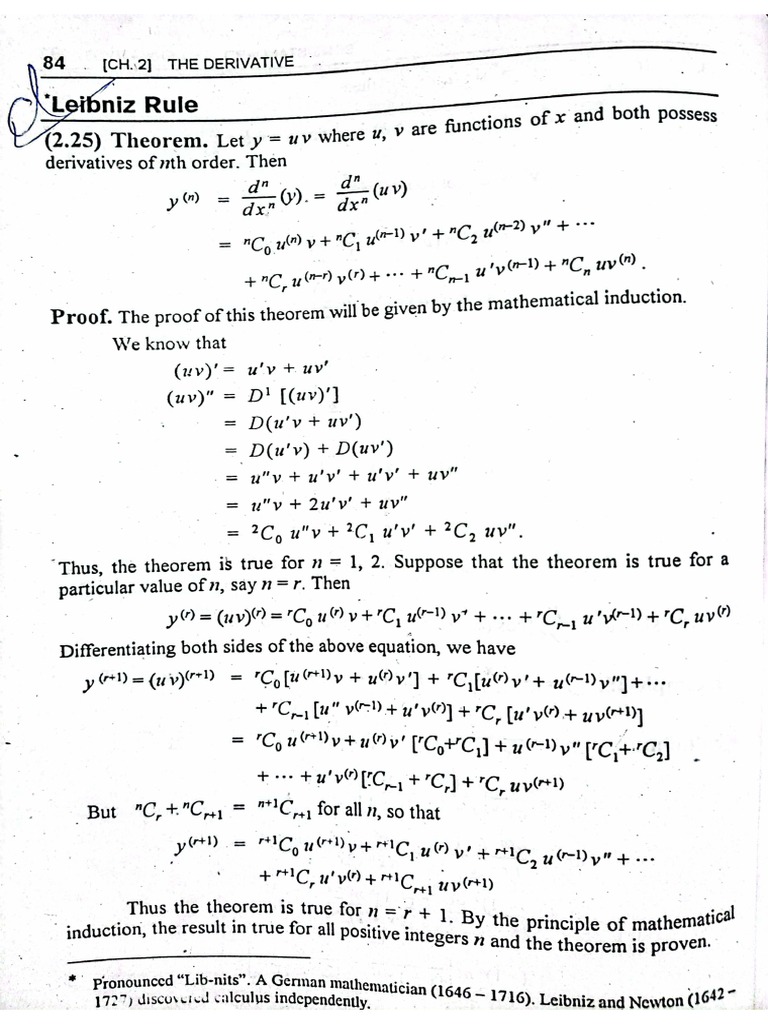 84 [CH. 2] THE DERIVATIVE
*Leibniz Rule
(2.25) Theorem. Let y = u v where u, v are functions of x and both possess
derivatives of nth order. Then
y⁽ⁿ⁾ = dⁿ/dxⁿ (y). = dⁿ/dxⁿ (u v)
= ⁿC₀ u⁽ⁿ⁾ v + ⁿC₁ u⁽ⁿ⁻¹⁾ v′ + ⁿC₂ u⁽ⁿ⁻²⁾ v″ + ⋯
+ ⁿCᵣ u⁽ⁿ⁻ʳ⁾ v⁽ʳ⁾ + ⋯ + ⁿCₙ₋₁ u′v⁽ⁿ⁻¹⁾ + ⁿCₙ uv⁽ⁿ⁾ .
Proof. The proof of this theorem will be given by the mathematical induction.
We know that
(uv)′ = u′v + uv′
(uv)″ = D¹ [(uv)′]
= D(u′v + uv′)
= D(u′v) + D(uv′)
= u″v + u′v′ + u′v′ + uv″
= u″v + 2u′v′ + uv″
= ²C₀ u″v + ²C₁ u′v′ + ²C₂ uv″.
Thus, the theorem is true for n = 1, 2. Suppose that the theorem is true for a
particular value of n, say n = r. Then
y⁽ʳ⁾ = (uv)⁽ʳ⁾ = ʳC₀ u⁽ʳ⁾ v + ʳC₁ u⁽ʳ⁻¹⁾ v′ + ⋯ + ʳCᵣ₋₁ u′v⁽ʳ⁻¹⁾ + ʳCᵣ uv⁽ʳ⁾
Differentiating both sides of the above equation, we have
y⁽ʳ⁺¹⁾ = (uv)⁽ʳ⁺¹⁾ = ʳC₀ [u⁽ʳ⁺¹⁾ v + u⁽ʳ⁾ v′] + ʳC₁ [u⁽ʳ⁾ v′ + u⁽ʳ⁻¹⁾ v″] + ⋯
+ ʳCᵣ₋₁ [u″ v⁽ʳ⁻¹⁾ + u′v⁽ʳ⁾] + ʳCᵣ [u′v⁽ʳ⁾ + uv⁽ʳ⁺¹⁾]
= ʳC₀ u⁽ʳ⁺¹⁾ v + u⁽ʳ⁾ v′ [ʳC₀ + ʳC₁] + u⁽ʳ⁻¹⁾ v″ [ʳC₁ + ʳC₂]
+ ⋯ + u′v⁽ʳ⁾ [ʳCᵣ₋₁ + ʳCᵣ] + ʳCᵣ uv⁽ʳ⁺¹⁾
But ⁿCᵣ + ⁿCᵣ₊₁ = ⁿ⁺¹Cᵣ₊₁ for all n, so that
y⁽ʳ⁺¹⁾ = ʳ⁺¹C₀ u⁽ʳ⁺¹⁾ v + ʳ⁺¹C₁ u⁽ʳ⁾ v′ + ʳ⁺¹C₂ u⁽ʳ⁻¹⁾ v″ + ⋯
+ ʳ⁺¹Cᵣ u′v⁽ʳ⁾ + ʳ⁺¹Cᵣ₊₁ uv⁽ʳ⁺¹⁾
Thus the theorem is true for n = r + 1. By the principle of mathematical
induction, the result in true for all positive integers n and the theorem is proven.
* Pronounced “Lib-nits”. A German mathematician (1646 – 1716). Leibniz and Newton (1642 –
1727) discovered calculus independently.